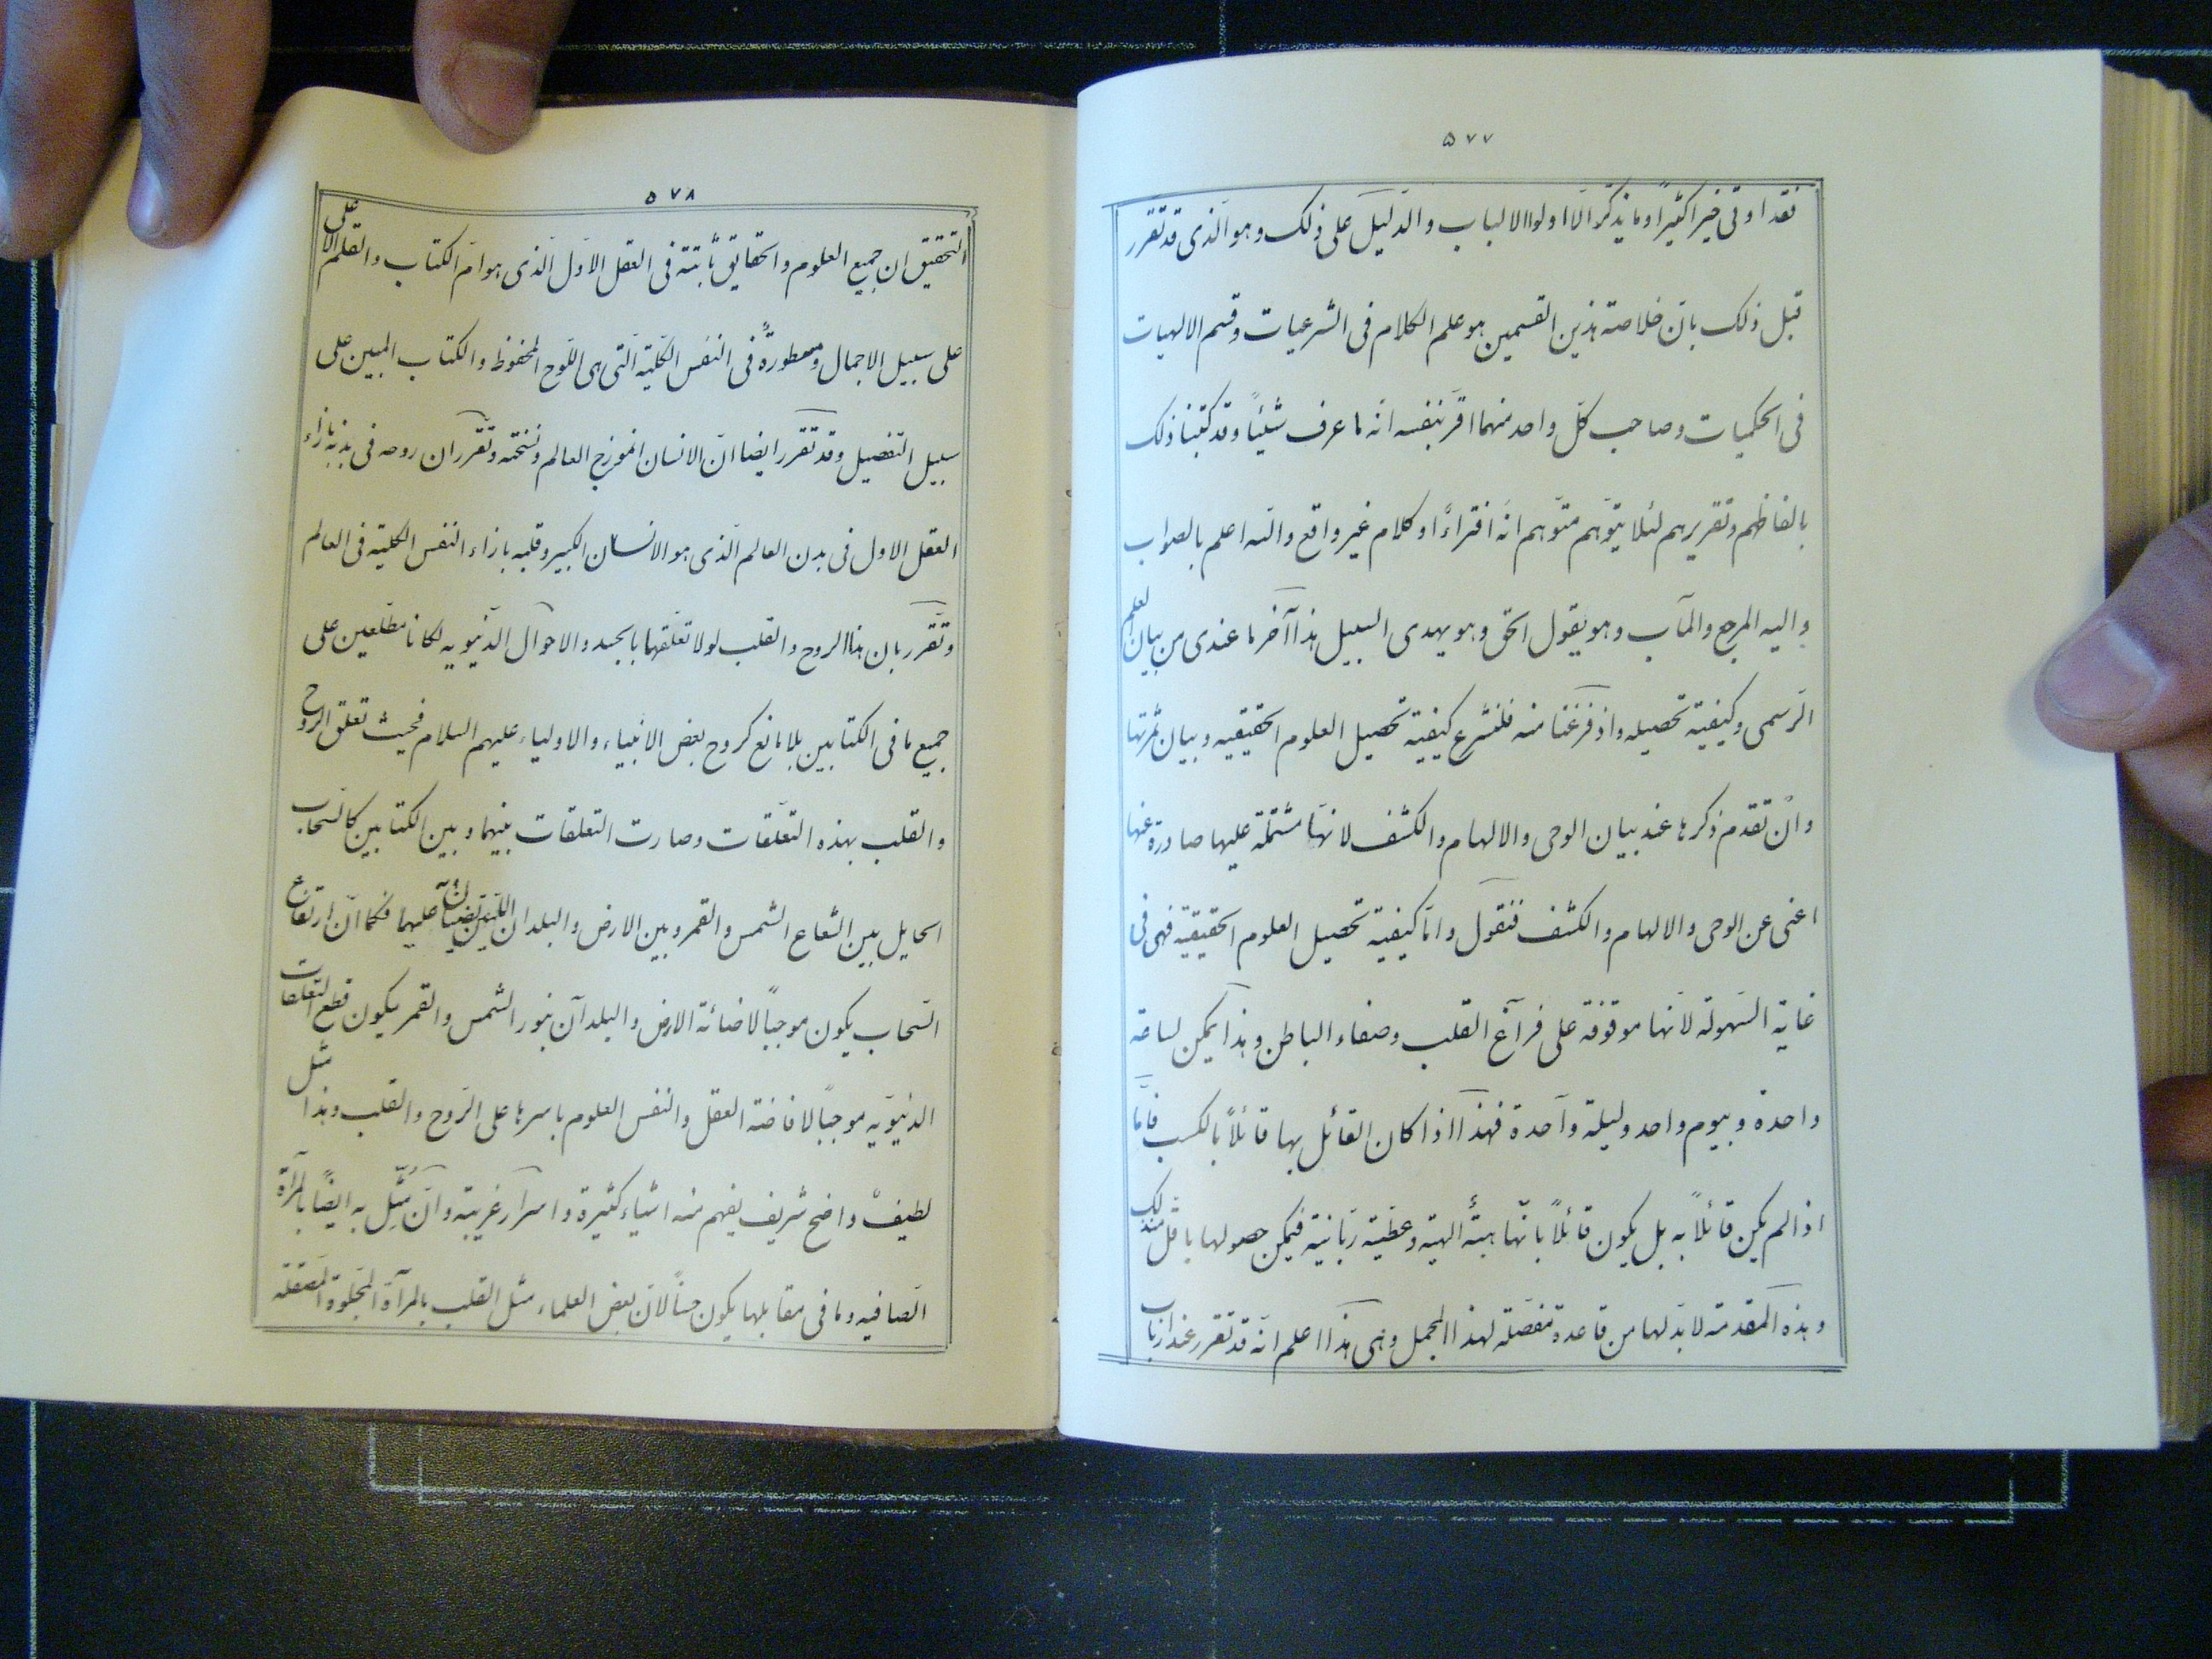 ۵۷۷
فقد اوتی خیراً کثیراً و ما یذکّر الّا اولوا الالباب و الدّلیل علی ذلک و هو الّذی قد تقرر
قبل ذلک بانّ خلاصة هذین القسمین هو علم الکلام فی الشرعیات و قسم الالهیات
فی الحکمیات و صاحب کلّ واحد منهما اقرّ بنفسه انّه ما عرف شیئاً و قد کتبنا ذلک
بالفاظهم و تقریرهم لئلا یتوّهم متوّهم انّه افتراءً او کلام غیر واقع و الله اعلم بالصواب
و الیه المرجع و المآب و هو یقول الحق و هو یهدی السبیل هذا آخر ما عندی من بیان العلم
الرّسمی و کیفیة تحصیله و اذ فرغنا منه فلنشرع کیفیة تحصیل العلوم الحقیقیه و بیان ثمرتها
و انْ تقدم ذکرها عند بیان الوحی و الالهام و الکشف لانهّا مشتملة علیها صادرة عنها
اعنی عن الوحی و الالهام و الکشف فنقول و امّا کیفیة تحصیل العلوم الحقیقیة فهی فی
غایة السّهولة لانّها موقوفة علی فراغ القلب و صفاء الباطن و هذا یمکن لساعة
واحدة و بیوم واحد و لیلة واحدة فهذا اذا کان القائل بها قائلاً بالکسب فامّا
اذا لم یکن قائلاً به بل یکون قائلاً بانّها هبةٌ الهیة و عطّیة ربّانیة فیمکن حصولها باقل من ذلک
و هذه المقدمة لا بدّ لها من قاعدة مفصّلة لهذا المجمل و هی هذا اعلم انّه قد تقرر عند ارباب
۵۷۸
التحقیق ان جمیع العلوم و الحقایق ثابتة فی العقل الاوّل الّذی هو امّ الکتاب و القلم الاعلی
علی سبیل الاجمال و مسطورةٌ فی النفس الکلّیة الّتی هی اللّوح المحفوظ و الکتاب المبین علی
سبیل التفصیل و قد تقرر ایضا انّ الانسان انموذج العالم و نسخته و تقرّر ان روحه فی بدنه بازاء
العقل الاول فی بدن العالم الّذی هو الانسان الکبیر و قلبه بازاء النفس الکلیة فی العالم
و تقّرر بان هذا الروح و القلب لولا تعلّقهما بالجسد و الاحوال الدّنیویه لکانا مطّلعین علی
جمیع ما فی الکتابین بلا مانع کروح بعض الانبیاء و الاولیاء علیهم السلام فحیث تعلق الروح
و القلب بهذه التعلّقات و صارت التعلقات بینهما و بین الکتابین کالسّحاب
الحایل بین الشعاع الشمس و القمر و بین الارض و البلدان اللّذین یضیئان علیهما فکما انّ ارتفاع
السّحاب یکون موجباً لاضائة الارض و البلدان بنور الشمس و القمر یکون قطع التعلقات
الدنیویّه موجباً لافاضة العقل و النفس العلوم باسرها علی الرّوح و القلب و هذا مثل
لطیفٌ واضح شریف یفهم منه اشیاء کثیرة و اسرار غریبة و انْ مُثّل به ایضًا بالمرآة
الصّافیه و ما فی مقابلها یکون حسناً لانّ بعض العلماء مثل القلب بالمرآة المجلوة المصقلة